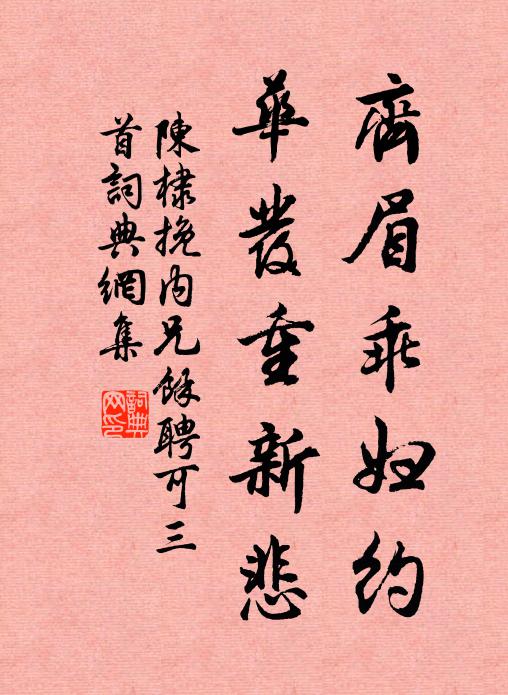 齊眉乖妇约
華發重新悲
陳棣挽内兄餘聘可三
首詞典網集
詞典网印